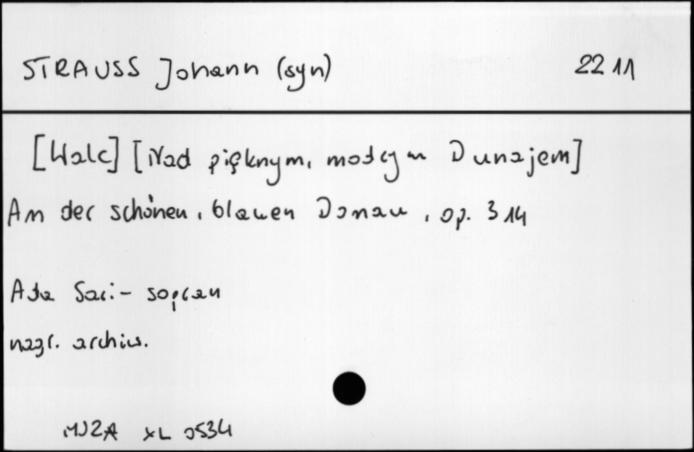 STRAUSS Johann (syn) 22 11
[Walc] [Nad pięknym, modrym Dunajem]
An der schönen, blauen Donau, op. 314
Ada Sari - sopran
nagr. archiw.
XL 0534